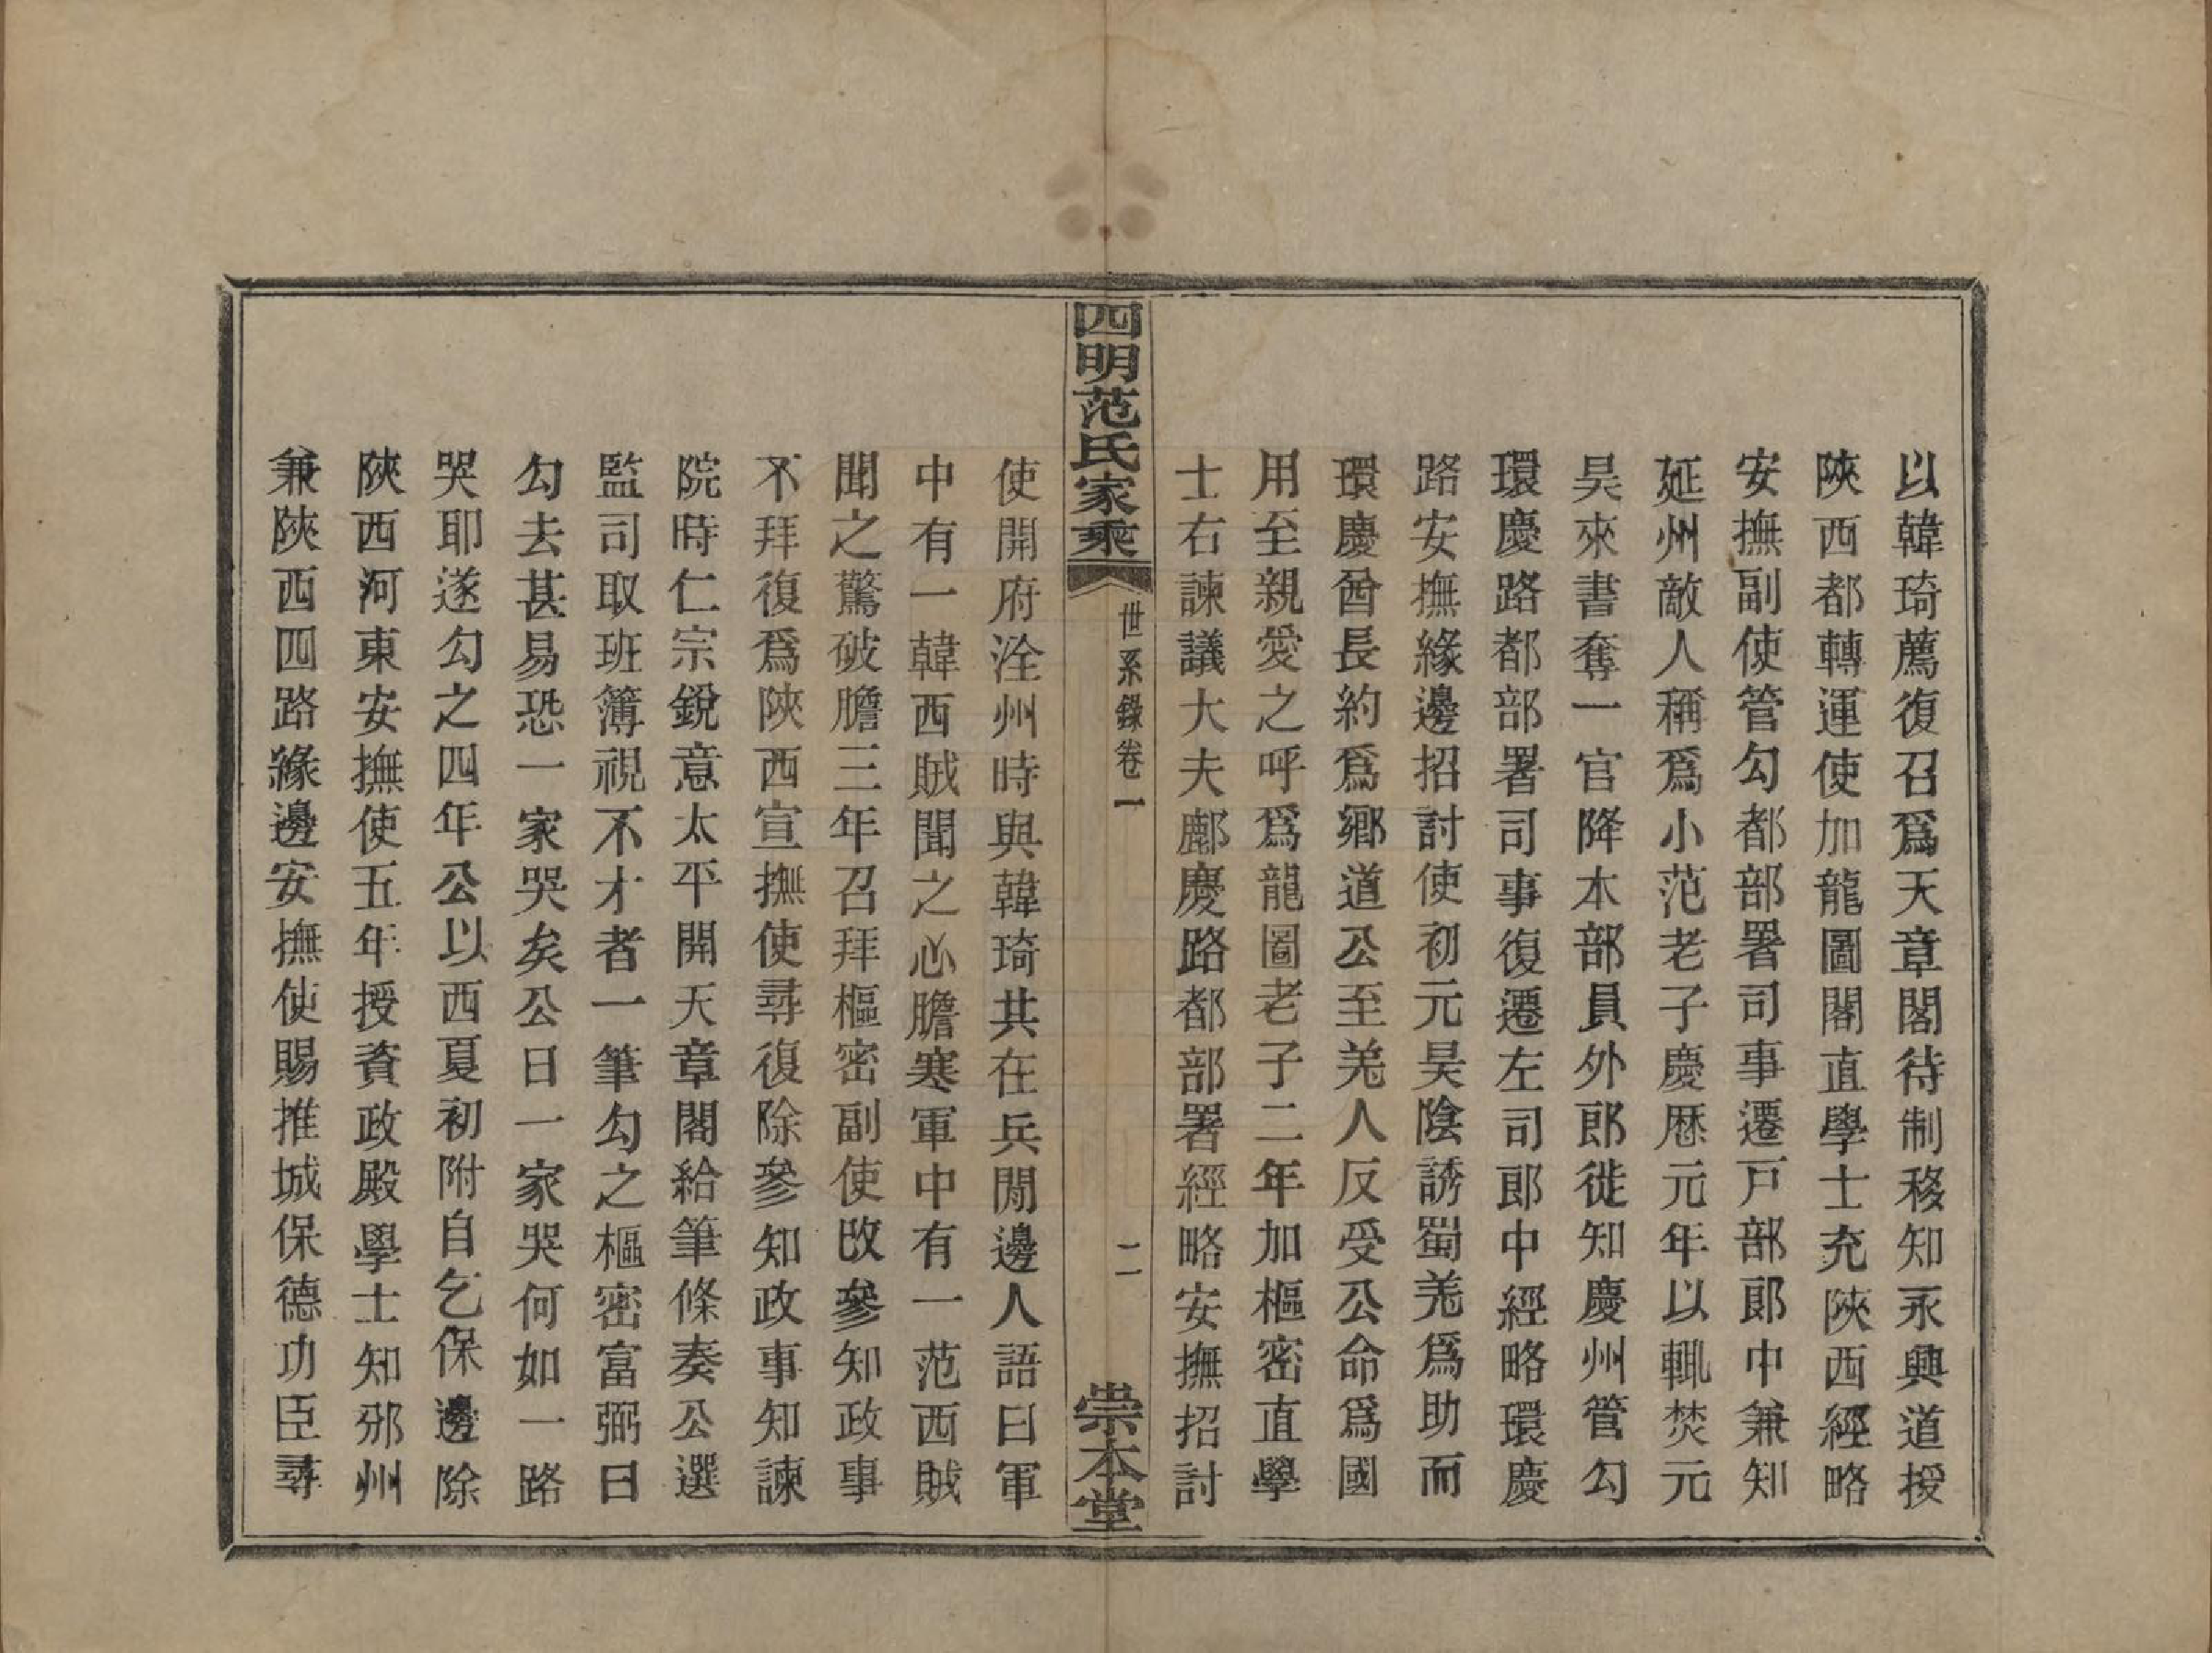 以韓琦薦復召爲天章閣待制移知永興道授
陝西都轉運使加龍圖閣直學士充陝西經略
安撫副使管勾都部署司事遷戸部郎中兼知
延州敵人稱爲小范老子慶歴元年以輒焚元
昊來書奪一官降本部員外郎徙知慶州管勾
環慶路都部署司事復遷左司郎中經略環慶
路安撫緣邊招討使初元昊陰誘蜀羌爲助而
環慶酋長約爲鄉道公至羌人反受公命爲國
用至親愛之呼爲龍圖老子二年加樞密直學
士右諫議大夫鄜慶路都部署經略安撫招討
四明范氏家乘
世系錄卷一
二
崇本堂
使開府涇州時與韓琦共在兵閒邊人語曰軍
中有一韓西賊聞之心膽寒軍中有一范西賊
聞之驚破膽三年召拜樞密副使改參知政事
不拜復爲陝西宣撫使尋復除參知政事知諫
院時仁宗銳意太平開天章閣給筆條奏公選
監司取班簿視不才者一筆勾之樞密富弼曰
勾去甚易恐一家哭矣公曰一家哭何如一路
哭耶遂勾之四年公以西夏初附自乞保邊除
陝西河東安撫使五年授資政殿學士知邠州
兼陝西四路緣邊安撫使賜推城保德功臣尋